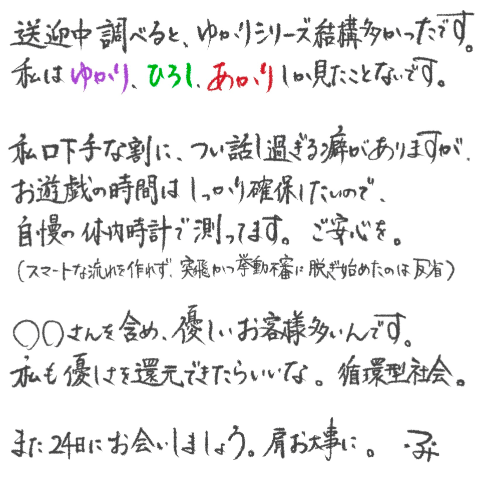 送迎中調べると、ゆかりシリーズ結構多かったです。
私はゆかり、ひろし、あかりしか見たことないです。
私口下手な割に、つい話し過ぎる癖がありますが、
お遊戯の時間はしっかり確保したいので、
自慢の体内時計で測ってます。ご安心を。
(スマートな流れを作れず、突飛かつ挙動不審に脱ぎ始めたのは反省)
〇〇さんを含め、優しいお客様多いんです。
私も優しさを還元できたらいいな。循環型社会。
また24日にお会いしましょう。肩お大事に。